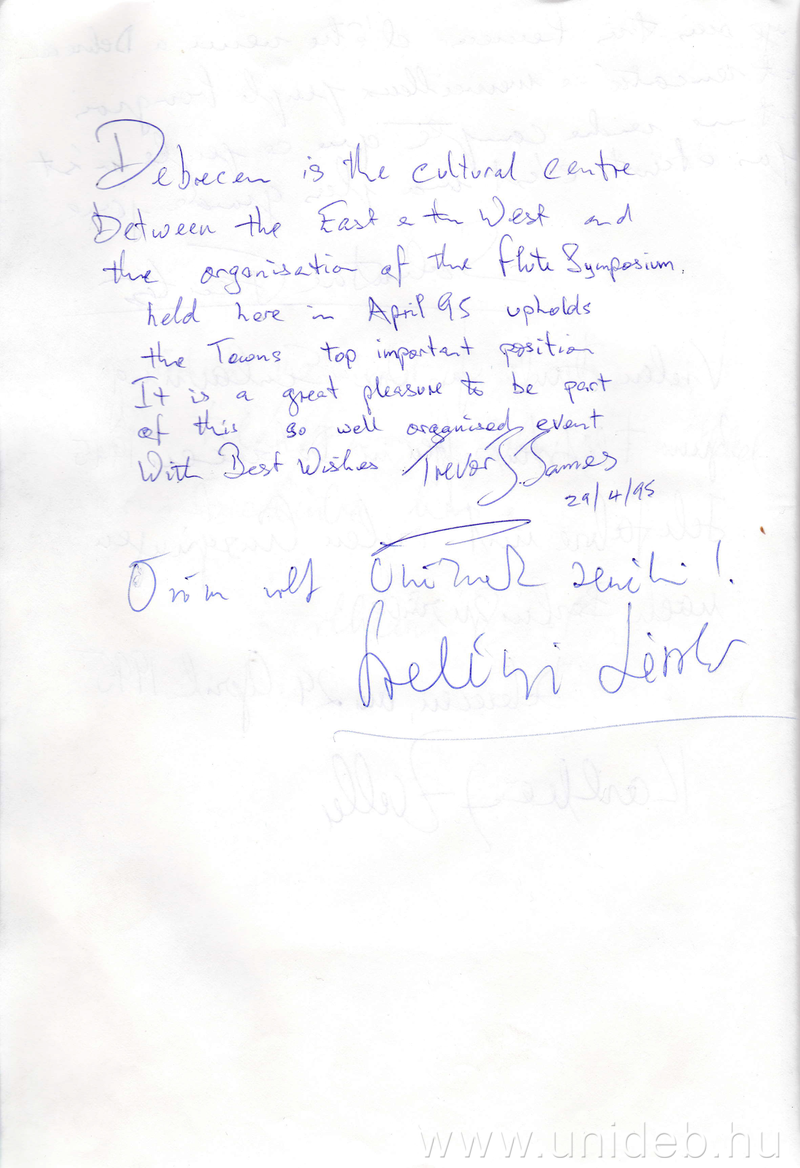 Debrecen is the cultural centre
Between the East & the West and
the organisation of the Flute Symposium.
held here in April 95 upholds
the Towns top important position
It is a great pleasure to be part
of this so well organised event
With Best Wishes Trevor S. James
29/4/95
Öröm volt Önöknek zenélni!
László
www.unideb.hu